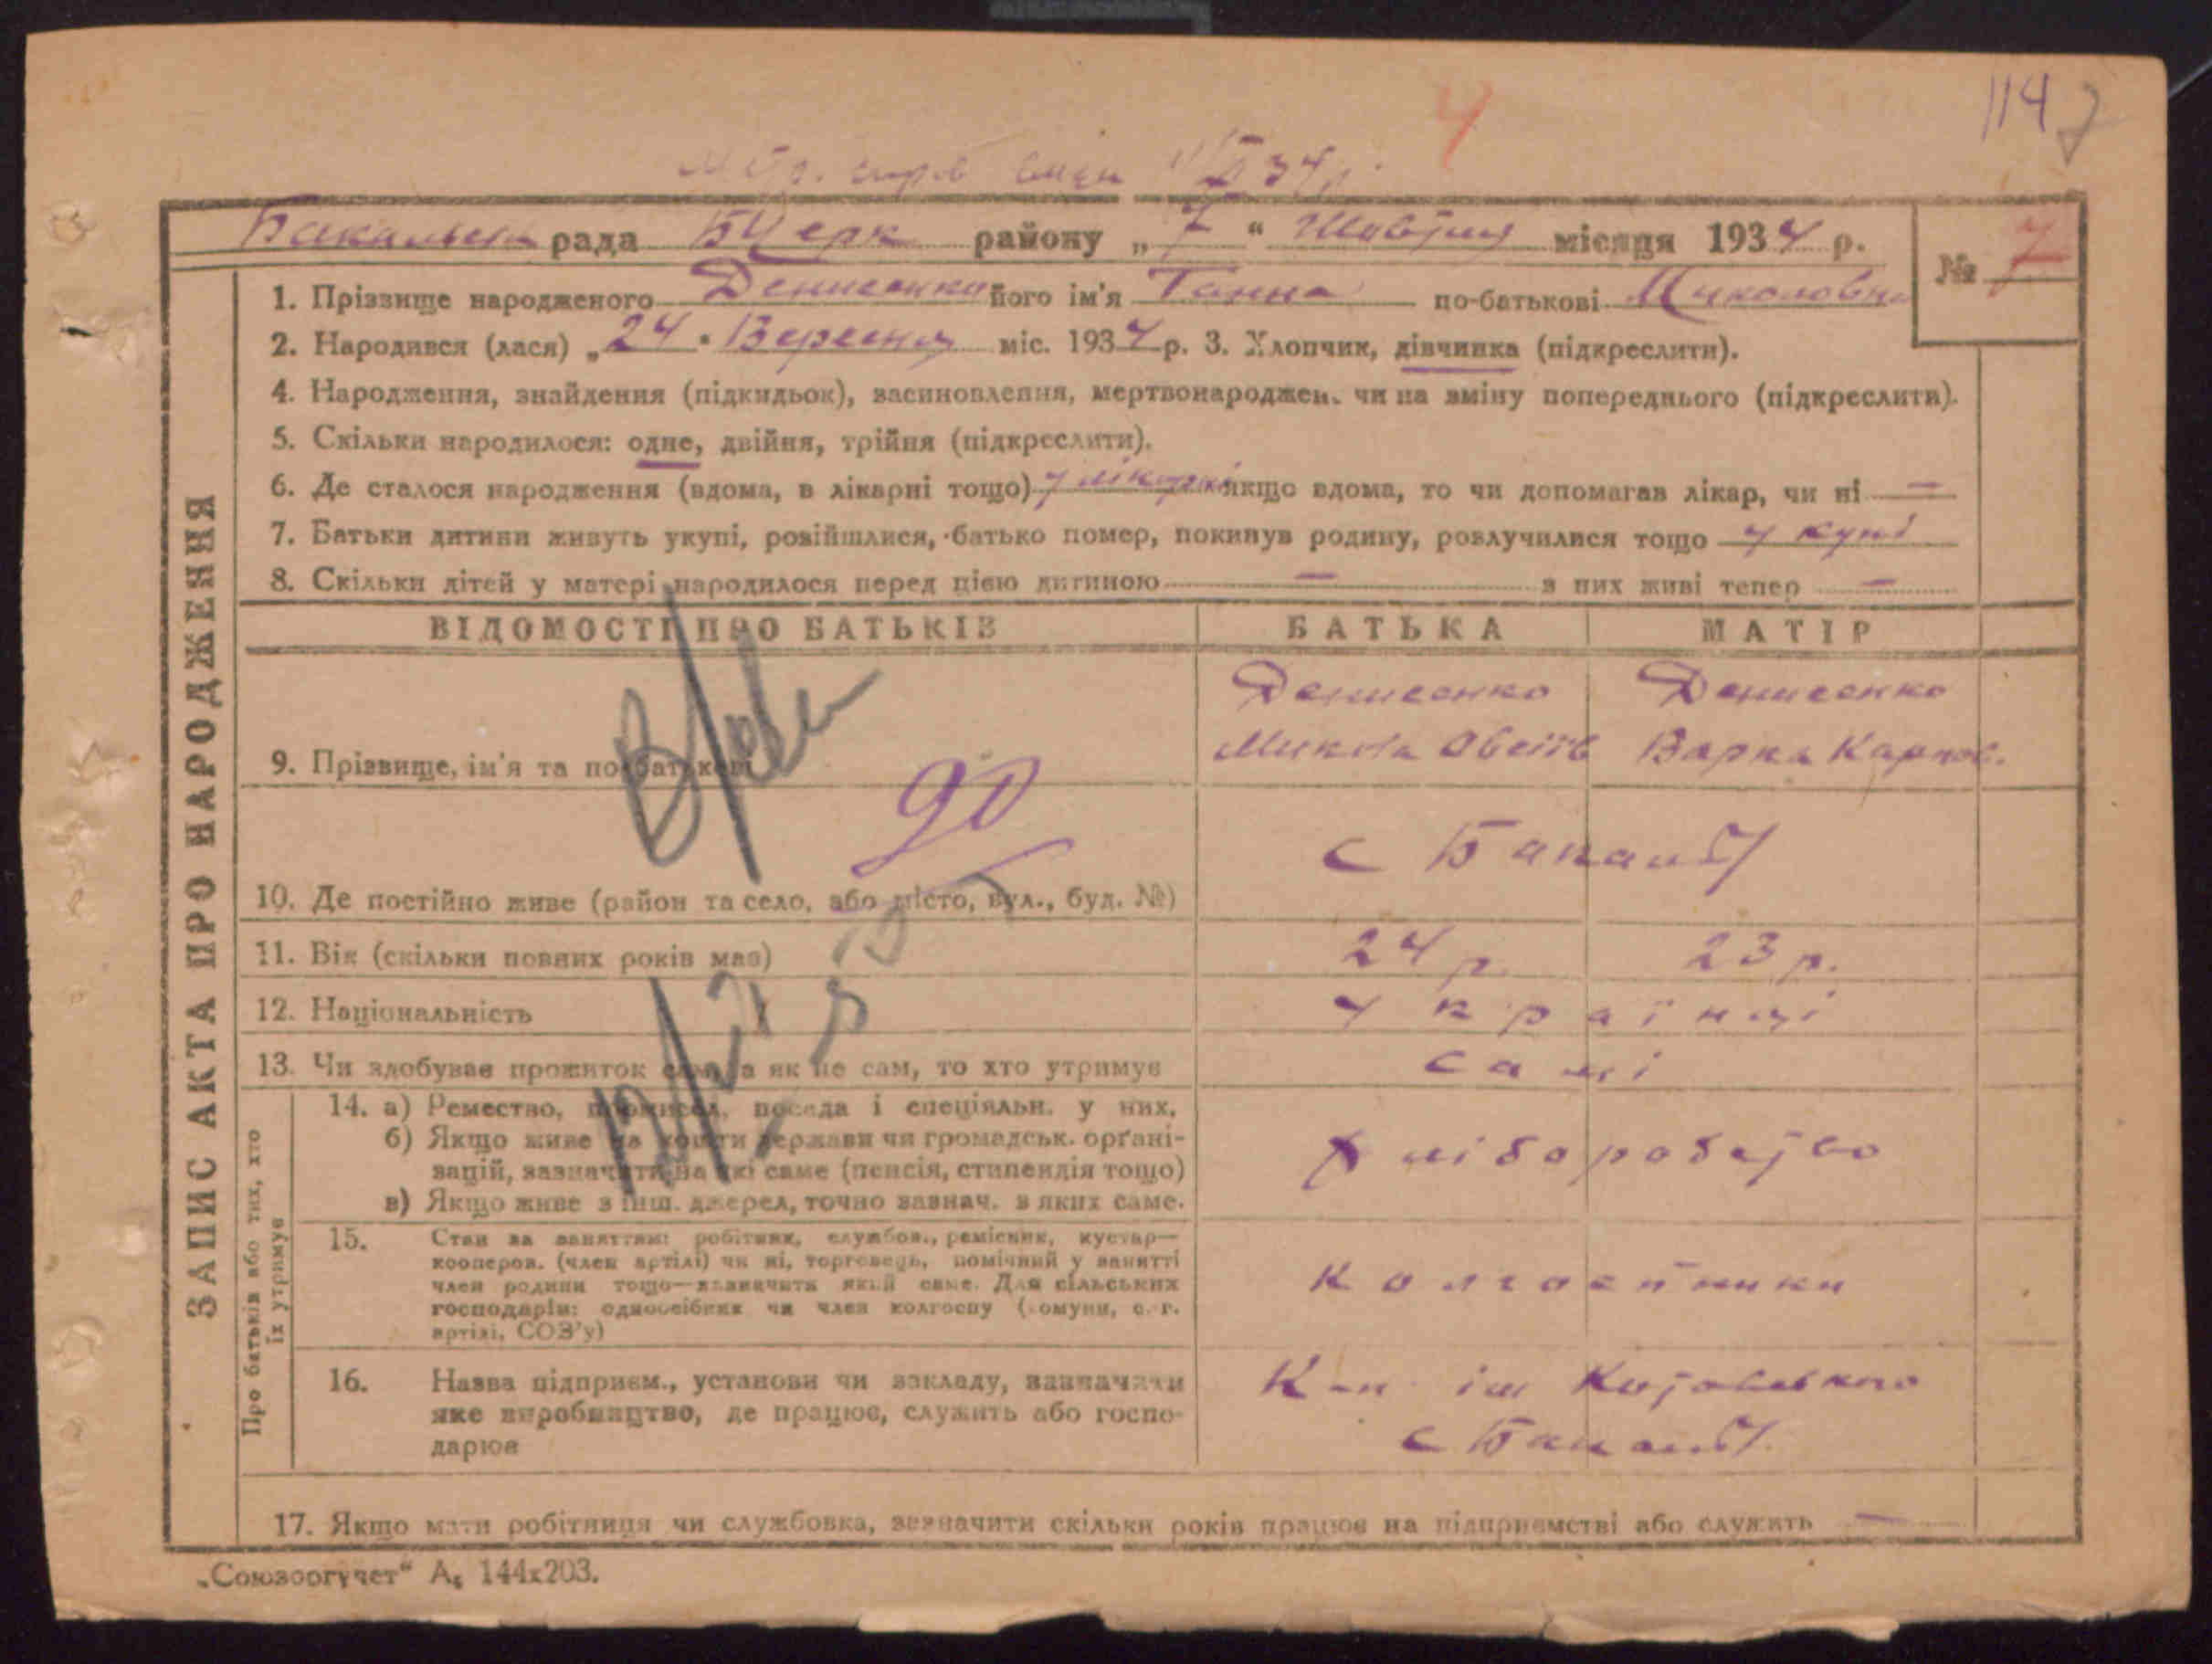 114 7
4
рада БЦерк району „ 7 “ Жовтня місяця 1934 р.
№ 7
1. Прізвище народженого Денисенко його ім'я Ганна по-батькові Миколовна
2. Народився (лася) „ 24 " Вересня міс. 1934 р. 3. Хлопчик, дівчинка (підкреслити).
4. Народження, знайдення (підкидьок), засиновлення, мертвонароджен. чи на зміну попереднього (підкреслити).
5. Скільки народилося: одне, двійня, трійня (підкреслити).
6. Де сталося народження (вдома, в лікарні тощо) у лікарні якщо вдома, то чи допомагав лікар, чи ні —
7. Батьки дитини живуть укупі, розійшлися, батько помер, покинув родину, розлучилися тощо у купі
8. Скільки дітей у матері народилося перед цією дитиною — з них живі тепер —
ЗАПИС АКТА ПРО НАРОДЖЕННЯ
ВІДОМОСТІ ПРО БАТЬКІВ БАТЬКА МАТІР
Денисенко Денисенко
9. Прізвище, ім'я та по-батькові Микола Варка Карпов.
90
10. Де постійно живе (район та село, або місто, вул., буд. №) с
11. Вік (скільки повних років має) 24 р. 23 р.
12. Національність українці
13. Чи здобуває прожиток сам, а як не сам, то хто утримує самі
Про батьків або тих, хто їх утримує
14. а) Ремество, промисел, посада і спеціяльн. у них.
б) Якщо живе на кошти держави чи громадськ. орґані-
зацій, зазначити на які саме (пенсія, стипендія тощо) хліборобство
в) Якщо живе з інш. джерел, точно зазнач. з яких саме.
15. Стан за заняттям: робітник, службов., ремісник, кустар—
кооперов. (член артілі) чи ні, торговець, помічний у занятті
член родини тощо—зазначити який саме. Для сільських
господарів: одноосібник чи член колгоспу (комуни, с.-г.
артілі, СОЗ'у)
колгоспники
16. Назва підприєм., установи чи закладу, зазначити
яке виробництво, де працює, служить або госпо-
дарює
К-п ім
с
17. Якщо мати робітниця чи службовка, зазначити скільки років працює на підприємстві або служить —
„Союзоргучет“ А₅ 144х203.